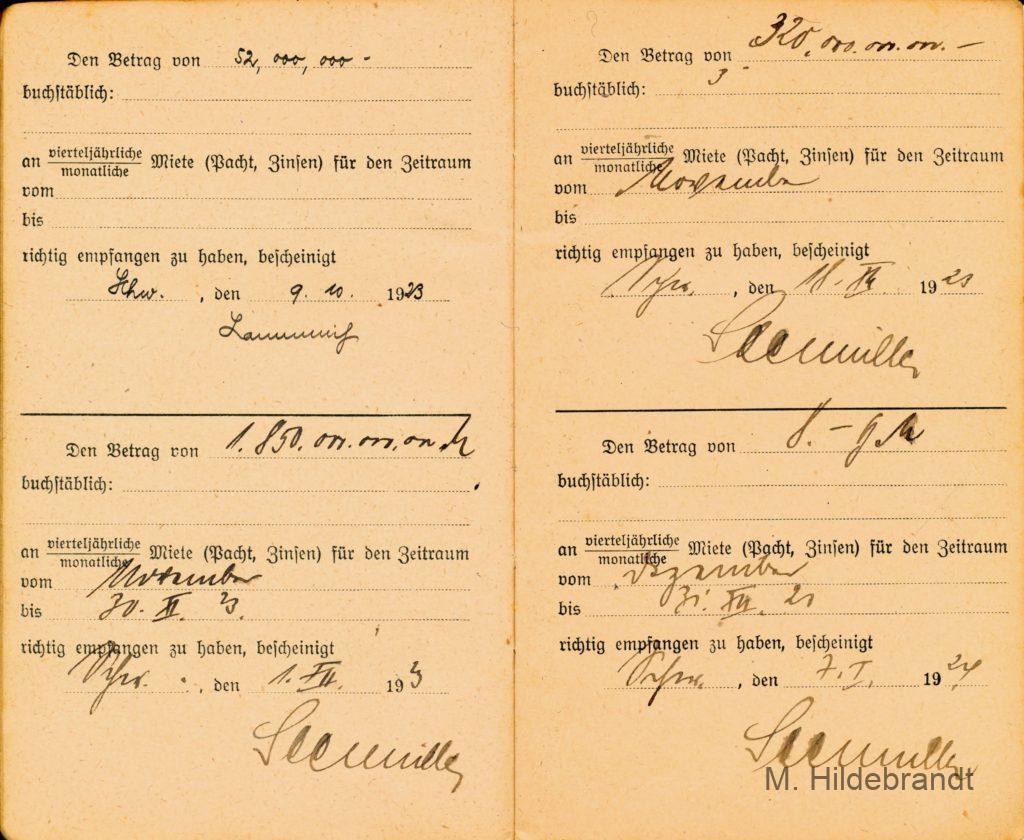 Den Betrag von 52,000,000 -
buchstäblich:
an vierteljährliche
monatliche Miete (Pacht, Zinsen) für den Zeitraum
vom
bis
richtig empfangen zu haben, bescheinigt
Schw. , den 9. 10. 1923
Den Betrag von 1.850.000.000.000 M
buchstäblich:
an vierteljährliche
monatliche Miete (Pacht, Zinsen) für den Zeitraum
vom November
bis 30. XI. 23.
richtig empfangen zu haben, bescheinigt
Schw. , den 1. XII. 1923
Seemüller
Den Betrag von 320.000.000.000. -
buchstäblich:
an vierteljährliche
monatliche Miete (Pacht, Zinsen) für den Zeitraum
vom November
bis
richtig empfangen zu haben, bescheinigt
Schw. , den 18. 1923
Seemüller
Den Betrag von 8. - g M
buchstäblich:
an vierteljährliche
monatliche Miete (Pacht, Zinsen) für den Zeitraum
vom Dezember
bis 31. XII. 23
richtig empfangen zu haben, bescheinigt
Schw. , den 7. I. 1924
Seemüller
M. Hildebrandt